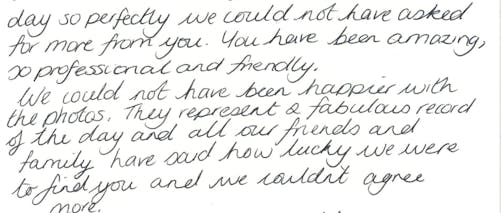 day so perfectly we could not have asked
for more from you. You have been amazing,
so professional and friendly.
We could not have been happier with
the photos. They represent a fabulous record
of the day and all our friends and
family have said how lucky we were
to find you and we couldn't agree
more.